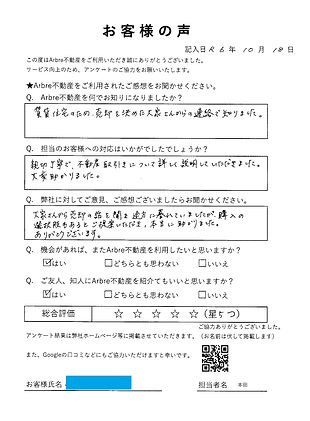 お客様の声
記入日 R 6 年 10 月 18 日
この度はArbre不動産をご利用いただき誠にありがとうございます。
サービス向上のため、アンケートのご協力をお願いいたします。
★Arbre不動産をご利用されたご感想をお聞かせください。
Q. Arbre不動産を何でお知りになりましたか？
賃貸住宅のため、売却を決めた大家さんからの連絡で知りました。
Q. 担当のお客様への対応はいかがでしたでしょうか？
親切丁寧で、不動産取引きについて詳しく説明していただきました。
大変助かりました。
Q. 弊社に対してご意見、ご感想ございましたらお聞かせください。
大家さんから売却の話を聞き途方に暮れていましたが、購入の
選択肢もあるとご提案いただき、本当に助かりました。
ありがとうございます。
Q. 機会があれば、またArbre不動産を利用したいと思いますか？
☑はい □どちらとも思わない □いいえ
Q. ご友人、知人にArbre不動産を紹介てもいいと思いますか？
☑はい □どちらとも思わない □いいえ
総合評価 ☆ ☆ ☆ ☆ ☆ (星5つ)
ご協力ありがとうございました。
アンケート結果は弊社ホームページ等に掲載させていただきます。（お名前は伏して掲載します）
また、Googleの口コミなどにもご協力いただけますと幸いです。
お客様氏名
担当者名 本田